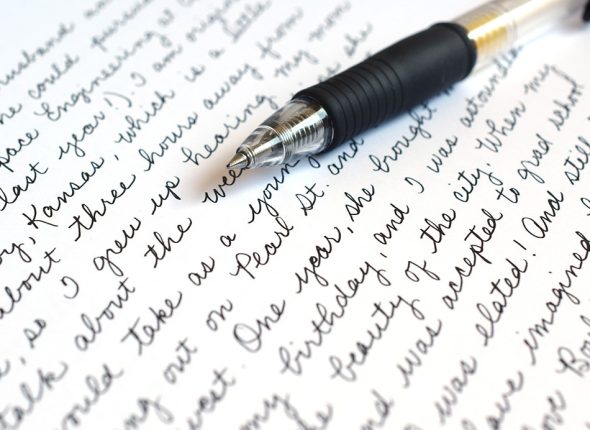 husband
he could pursue
space Engineering at
last year!). I am origin
, Kansas, which is a little
about three hours away from
, so I grew up hearing my mom
talk about the she
would take as a young
ng out on Pearl St. and
west. One year, she brought
my birthday, and I was astounde
he beauty of the city. When my
nd was accepted to grad school
was elated! And still
ave imagined
ve Bou